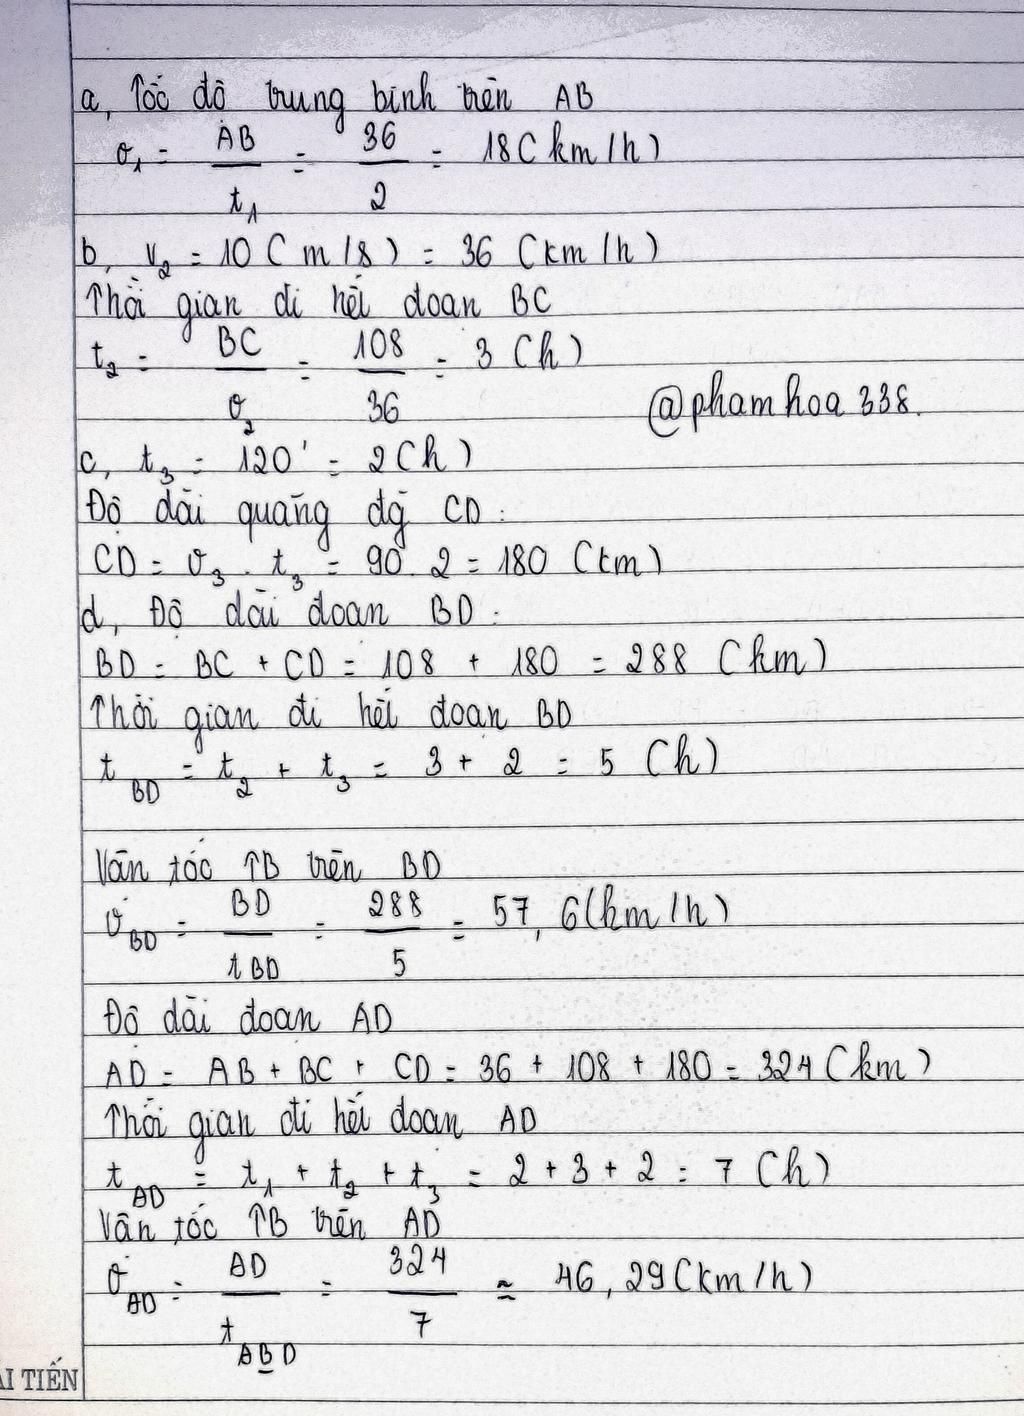 a, Tốc độ trung bình trên AB
v₁ = AB/t₁ = 36/2 = 18 (km/h)
b, v₂ = 10 (m/s) = 36 (km/h)
Thời gian đi hết đoạn BC
t₂ = BC/v₂ = 108/36 = 3 (h)
@phamhoa338.
c, t₃ = 120' = 2 (h)
Độ dài quãng đg CD:
CD = v₃ . t₃ = 90 . 2 = 180 (km)
d, Độ dài đoạn BD:
BD = BC + CD = 108 + 180 = 288 (km)
Thời gian đi hết đoạn BD
t_BD = t₂ + t₃ = 3 + 2 = 5 (h)
Vận tốc TB trên BD
v_BD = BD/t_BD = 288/5 = 57,6 (km/h)
Độ dài đoạn AD
AD = AB + BC + CD = 36 + 108 + 180 = 324 (km)
Thời gian đi hết đoạn AD
t_AD = t₁ + t₂ + t₃ = 2 + 3 + 2 = 7 (h)
Vận tốc TB trên AD
v_AD = AD/t_ABD = 324/7 ≈ 46,29 (km/h)
ẢI TIẾN